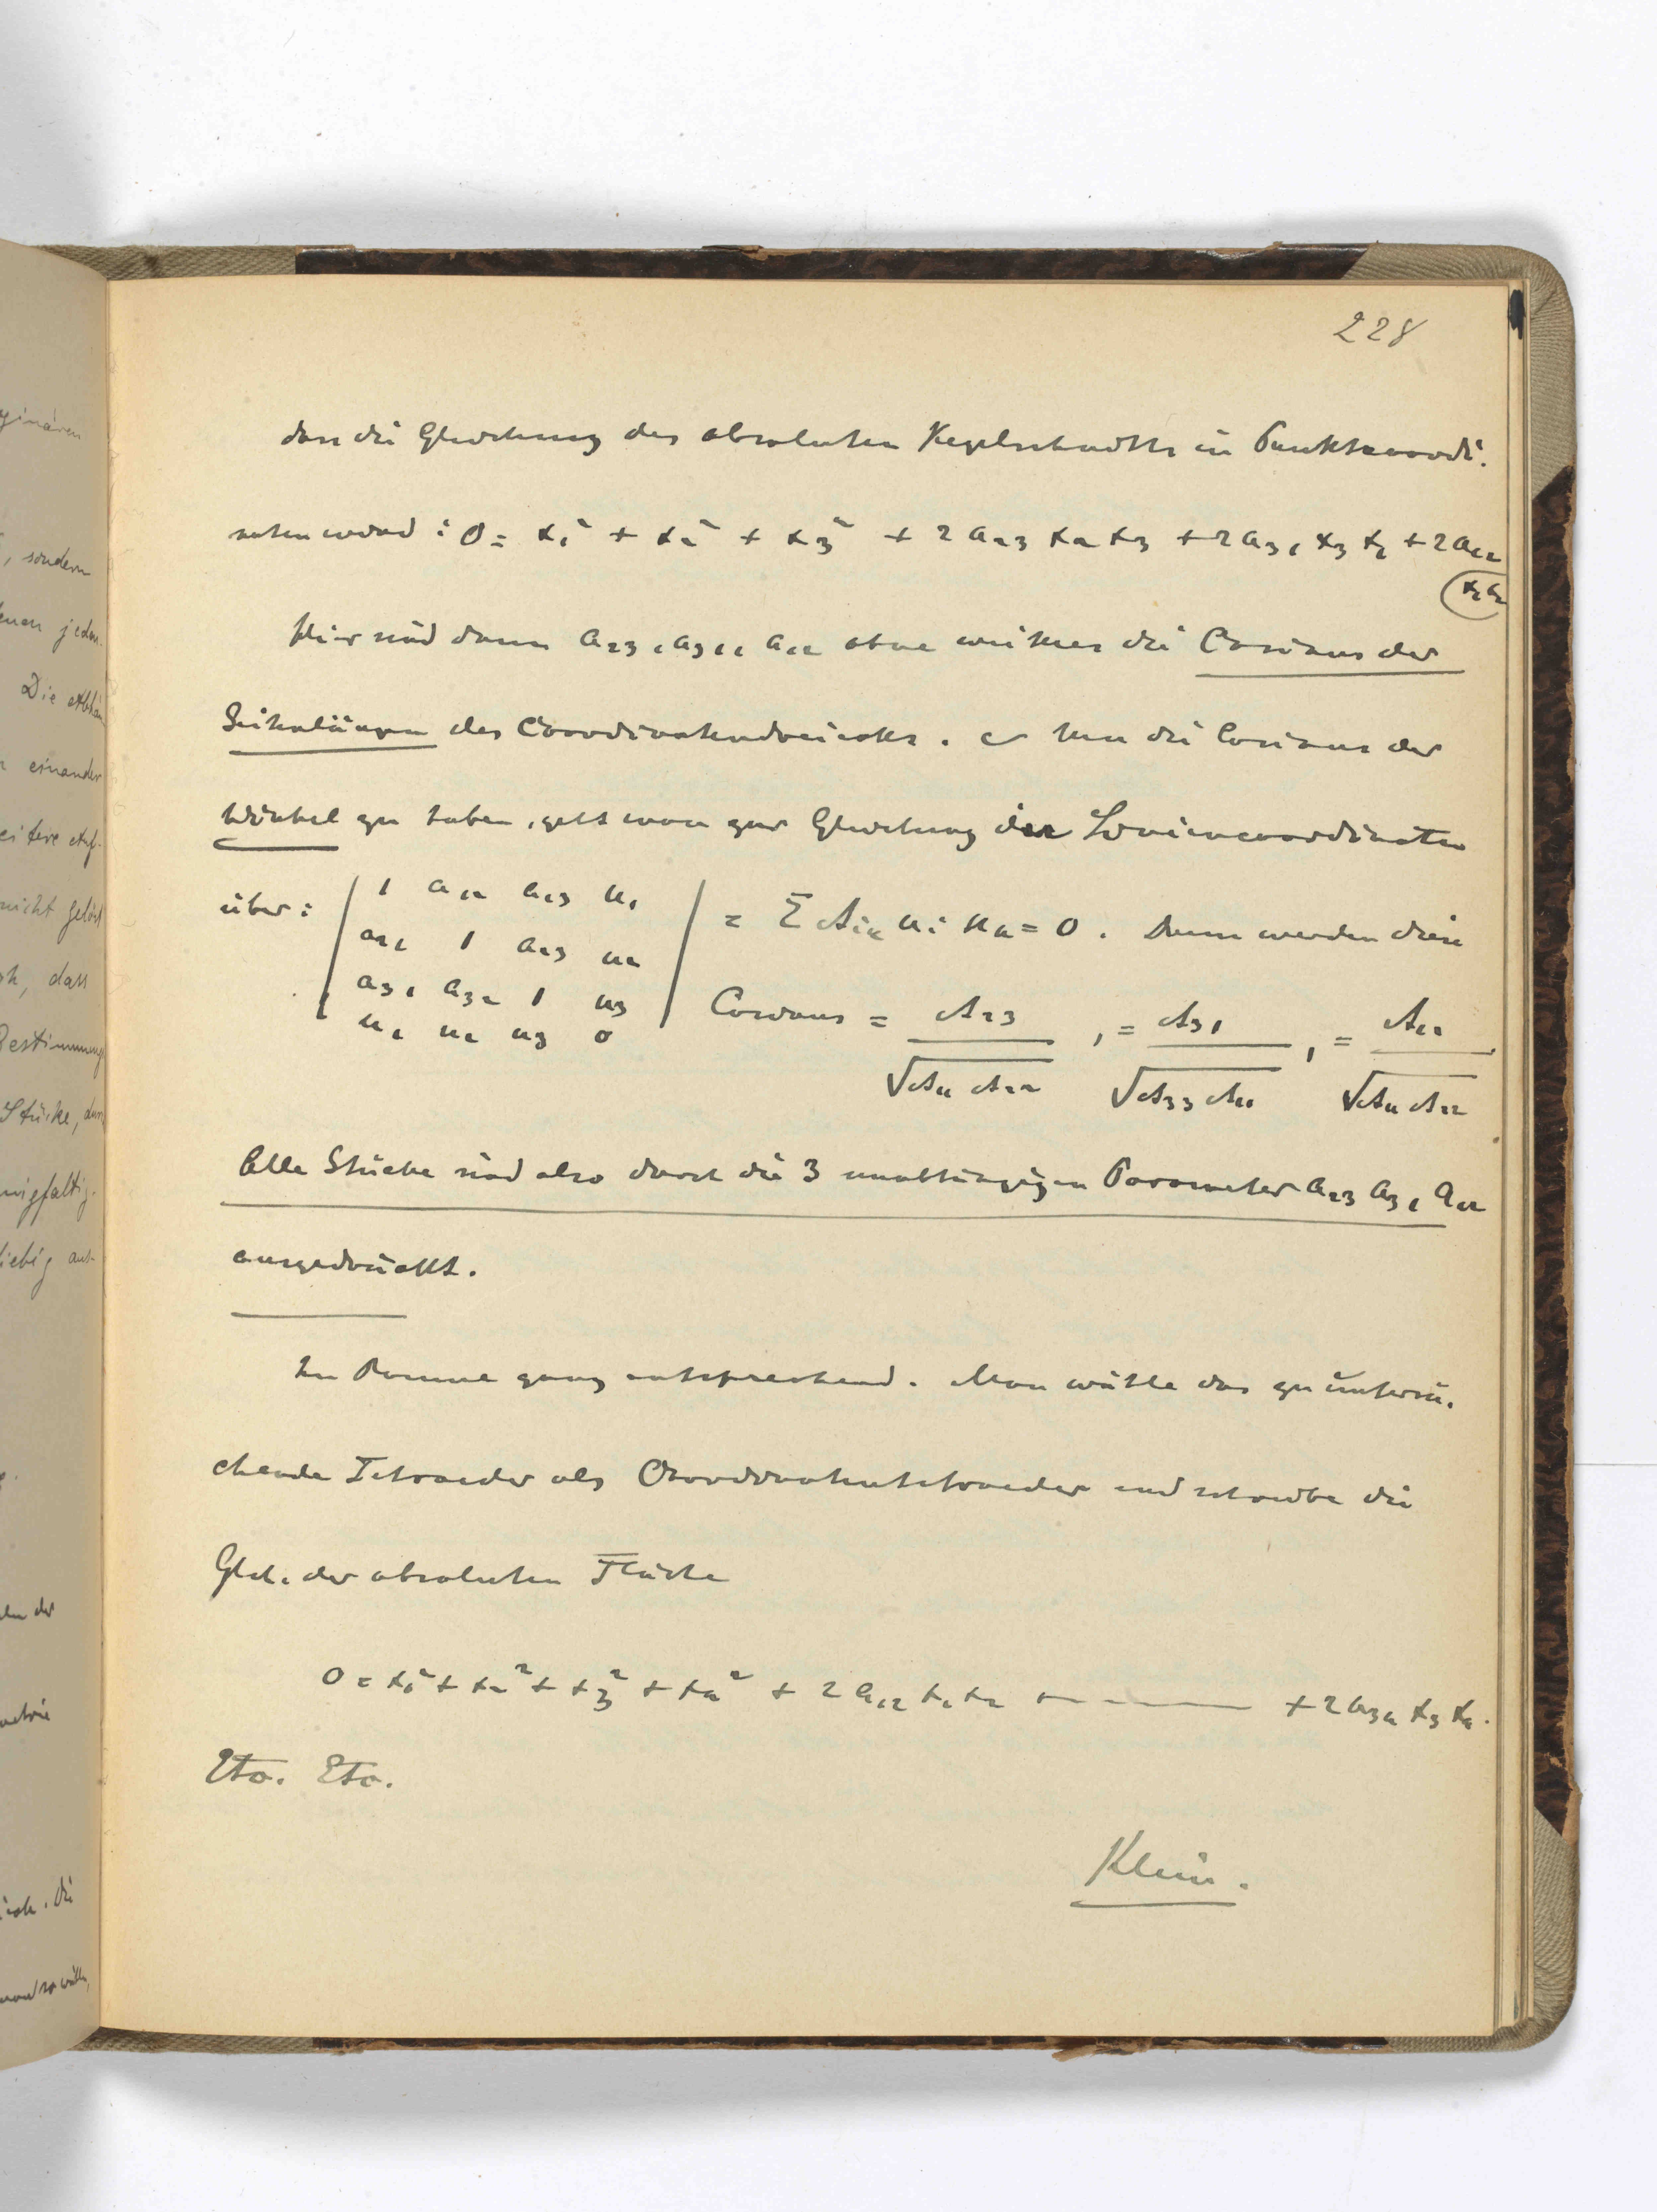 228
dass die Gleichung des absoluten Kegelschnitts in Punktcoordi-
naten wird: 0 = x₁² + x₂² + x₃² + 2a₂₃x₂x₃ + 2a₃₁x₃x₁ + 2a₁₂
x₁x₂
Hier sind dann a₂₃, a₃₁, a₁₂ ohne weiteres die Cosinus der
Seitenlängen des Coordinatendreiecks. Um die Cosinus der
Winkel zu haben, geht man zur Gleichung in Liniencoordinaten
über: | 1 a₁₂ a₁₃ u₁ | = Σ Aᵢₖ uᵢ uₖ = 0. Dann werden diese
| a₂₁ 1 a₂₃ u₂ |
| a₃₁ a₃₂ 1 u₃ | Cosinus = A₂₃ / √A₁₁ A₂₂, = A₃₁ / √A₃₃ A₁₁, = A₁₂ / √A₁₁ A₂₂
| u₁ u₂ u₃ 0 |
Alle Stücke sind also durch die 3 unabhängigen Parameter a₂₃ a₃₁ a₁₂
ausgedrückt.
Im Raume ganz entsprechend. Man wähle das zu untersu-
chende Tetraeder als Coordinatentetraeder und schreibe die
Glch. der absoluten Fläche
0 = x₁² + x₂² + x₃² + x₄² + 2a₁₂x₁x₂ + — — — + 2a₃₄x₃x₄.
Etc. Etc.
Klein.
ginären
, sondern
denen jedes
Die Abhän
einander
weitere Auf-
nicht gelöst
, dass
Bestimmungs
Stücke, dur
nigfaltig-
liebig aus-
der
metrie
die